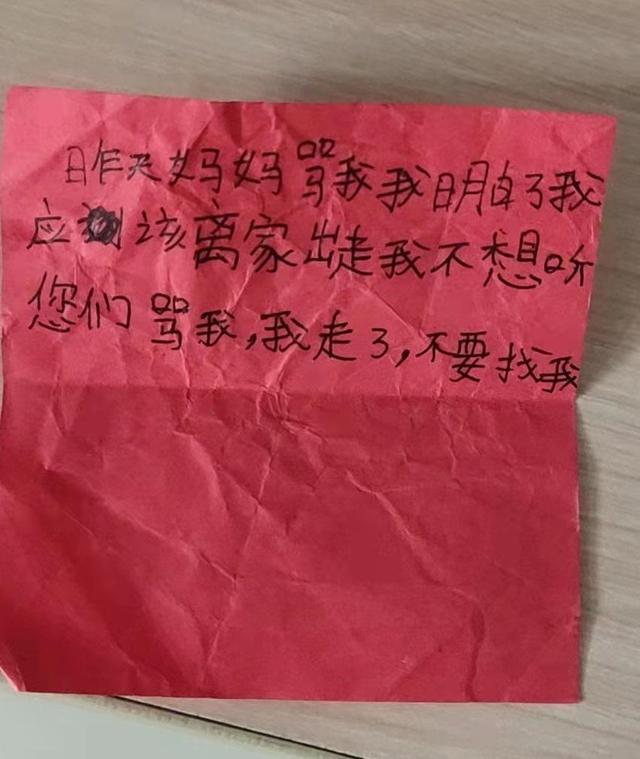 昨天妈妈骂我我明白了我
应该离家出走我不想听
您们骂我,我走了,不要找我